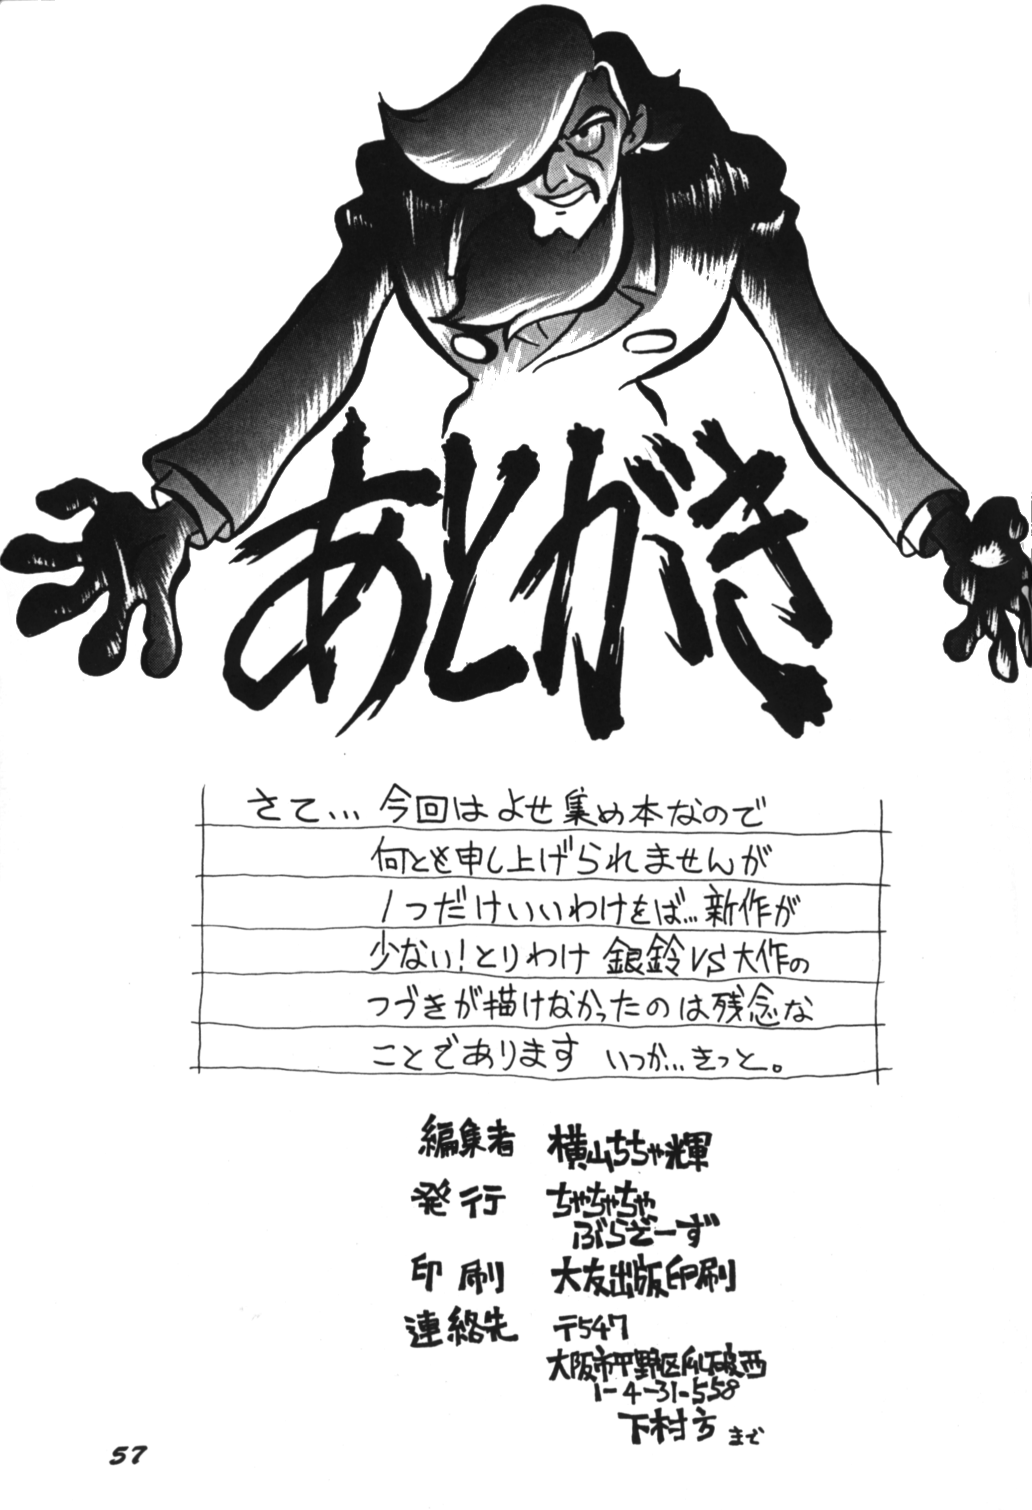 あとがき
さて… 今回は よせ集め本なので
何とも申し上げられませんが
1つだけいいわけをば… 新作が
少ない！とりわけ 銀鈴VS大作の
つづきが描けなかったのは残念な
ことであります いつか…きっと。
編集者 横山ちちゃ輝
発行 ちゃちゃちゃ
ぶらざーず
印刷 大友出版印刷
連絡先 〒547
大阪市平野区瓜破西
1-4-31-558
下村方 まで
57